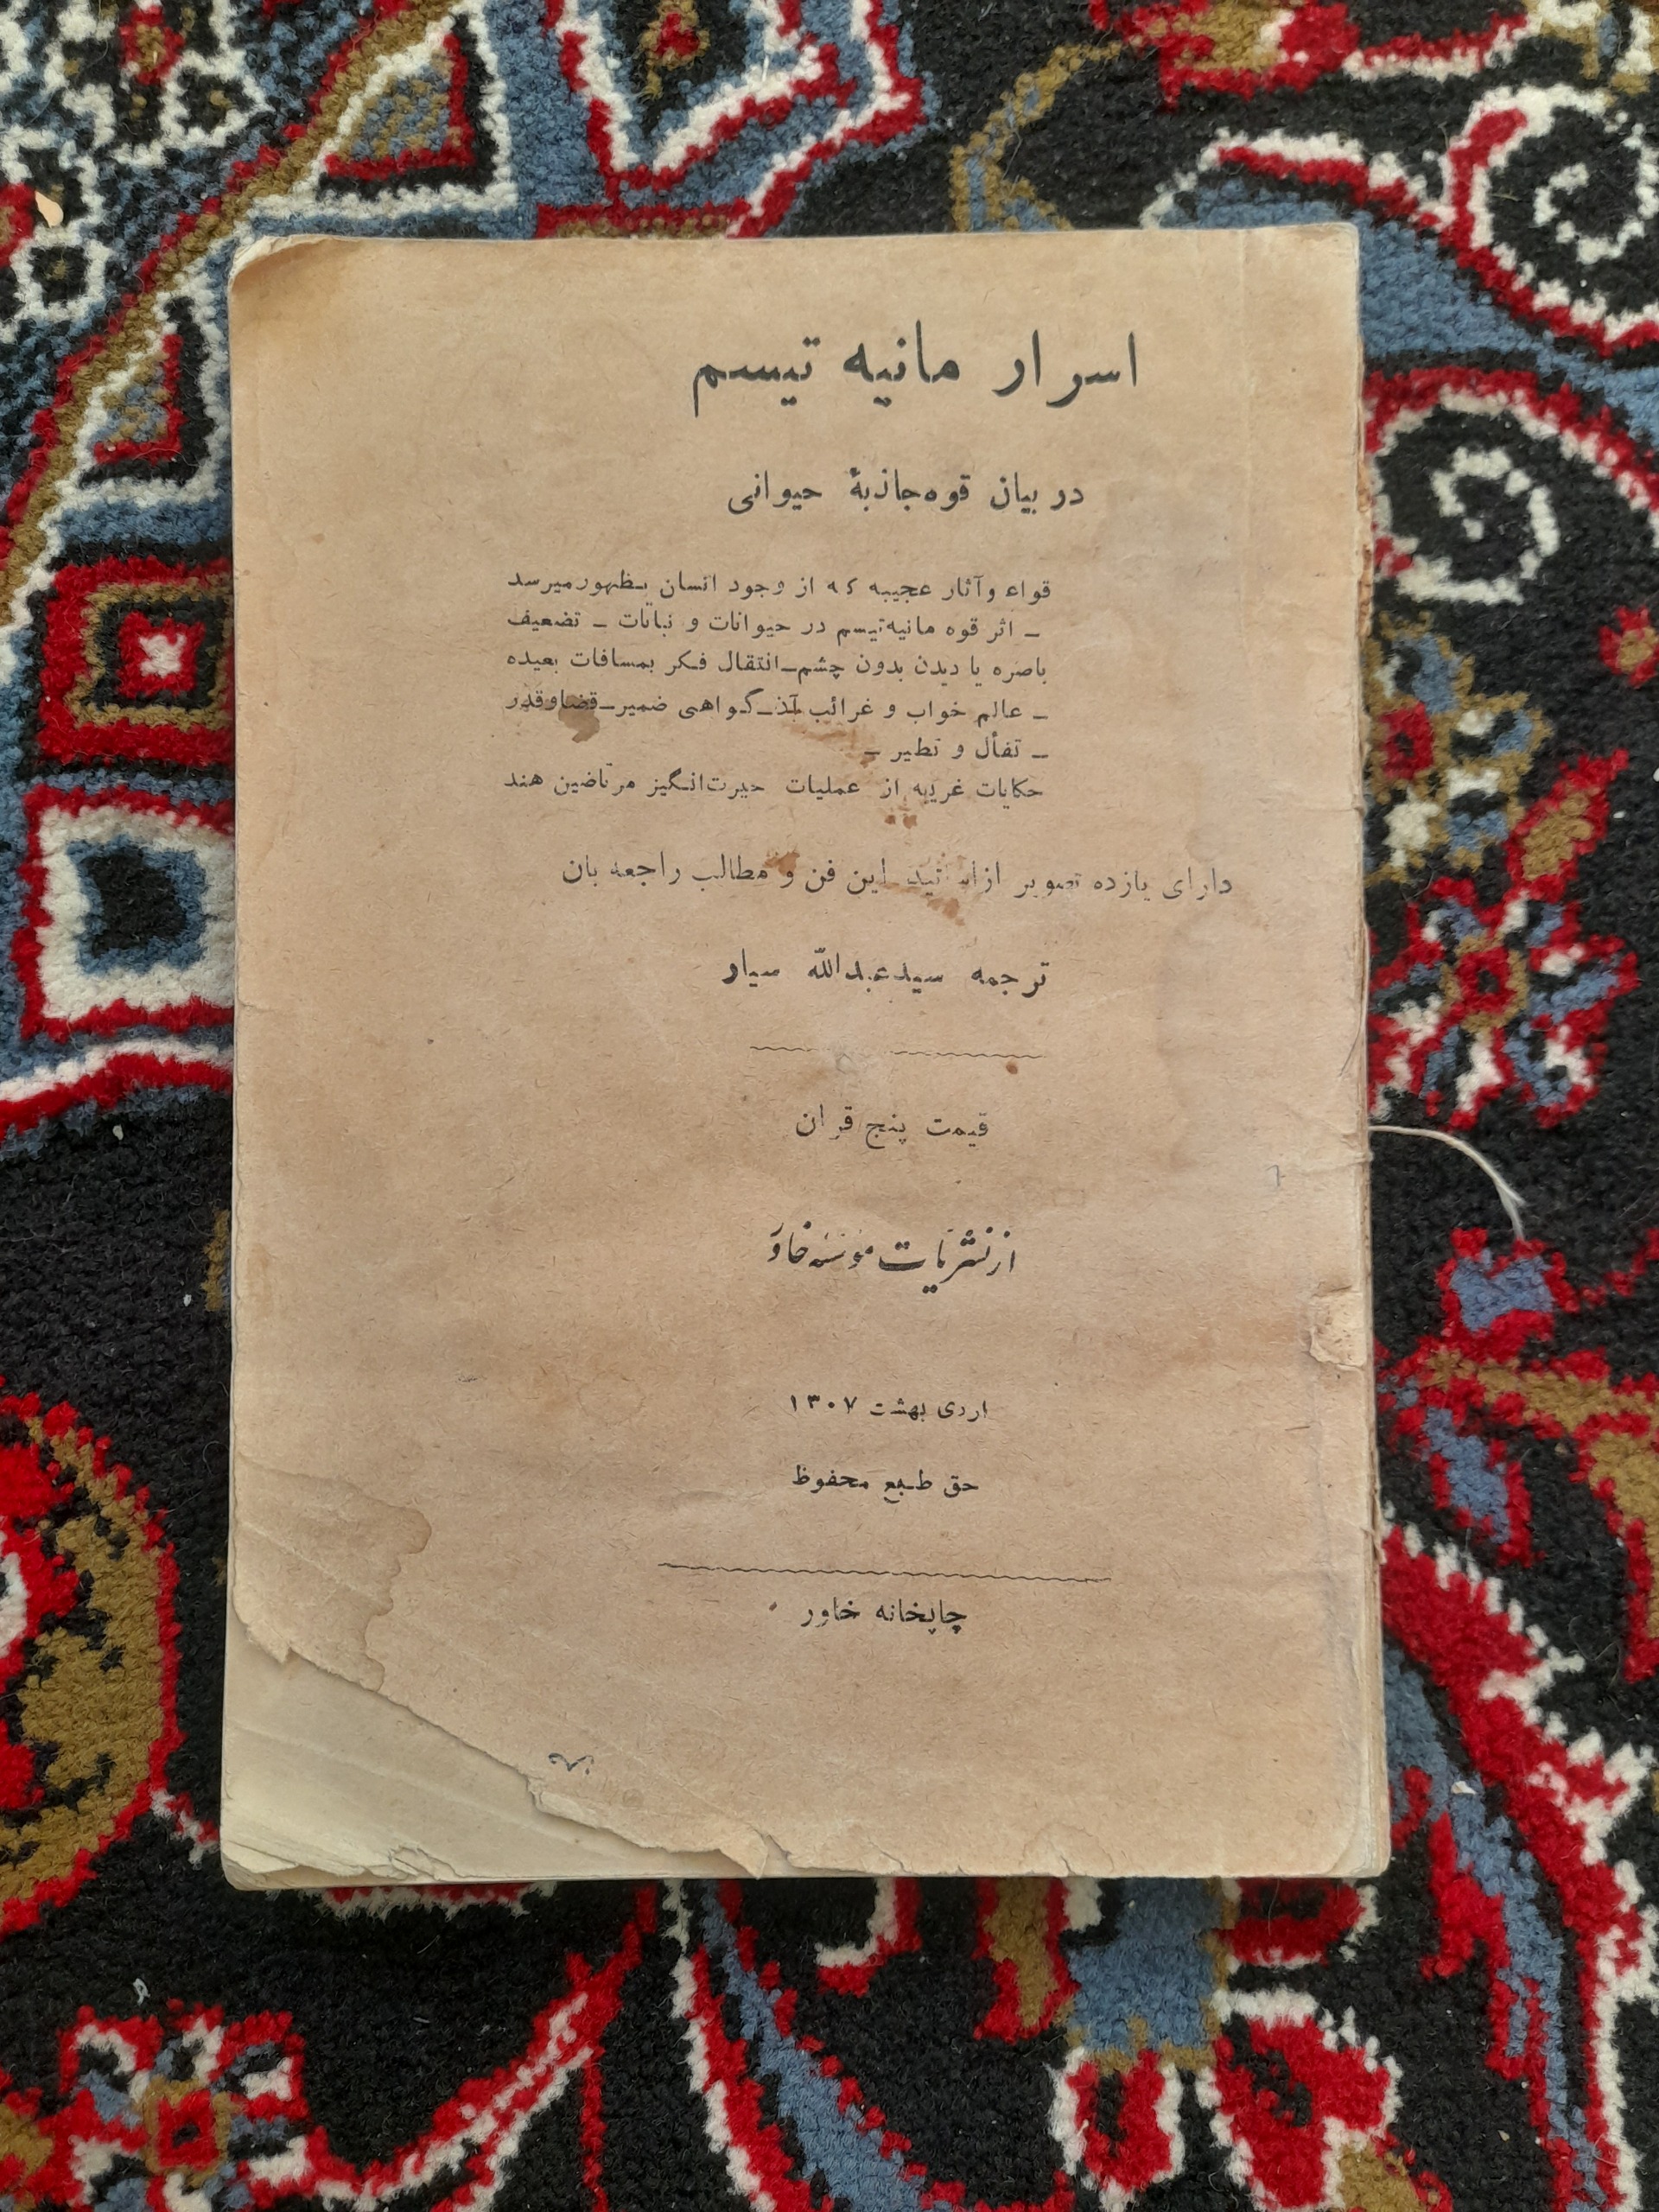 اسرار مانیه تیسم
در بیان قوه جاذبهٔ حیوانی
قواء وآثار عجیبه که از وجود انسان بظهور میرسد
ـ اثر قوه مانیه‌تیسم در حیوانات و نباتات ـ تضعیف
باصره یا دیدن بدون چشم ـ انتقال فکر بمسافات بعیده
ـ عالم خواب و غرائب آن ـ گواهی ضمیر ـ قضا وقدر
ـ تفأل و تطیر ـ
حکایات غریبه از عملیات حیرت‌انگیز مرتاضین هند
دارای یازده تصویر از این فن و مطالب راجعه بان
ترجمه سید عبدالله سیار
قیمت پنج قران
از نشریات مؤسسه خاور
اردی بهشت ۱۳۰۷
حق طبع محفوظ
چاپخانه خاور